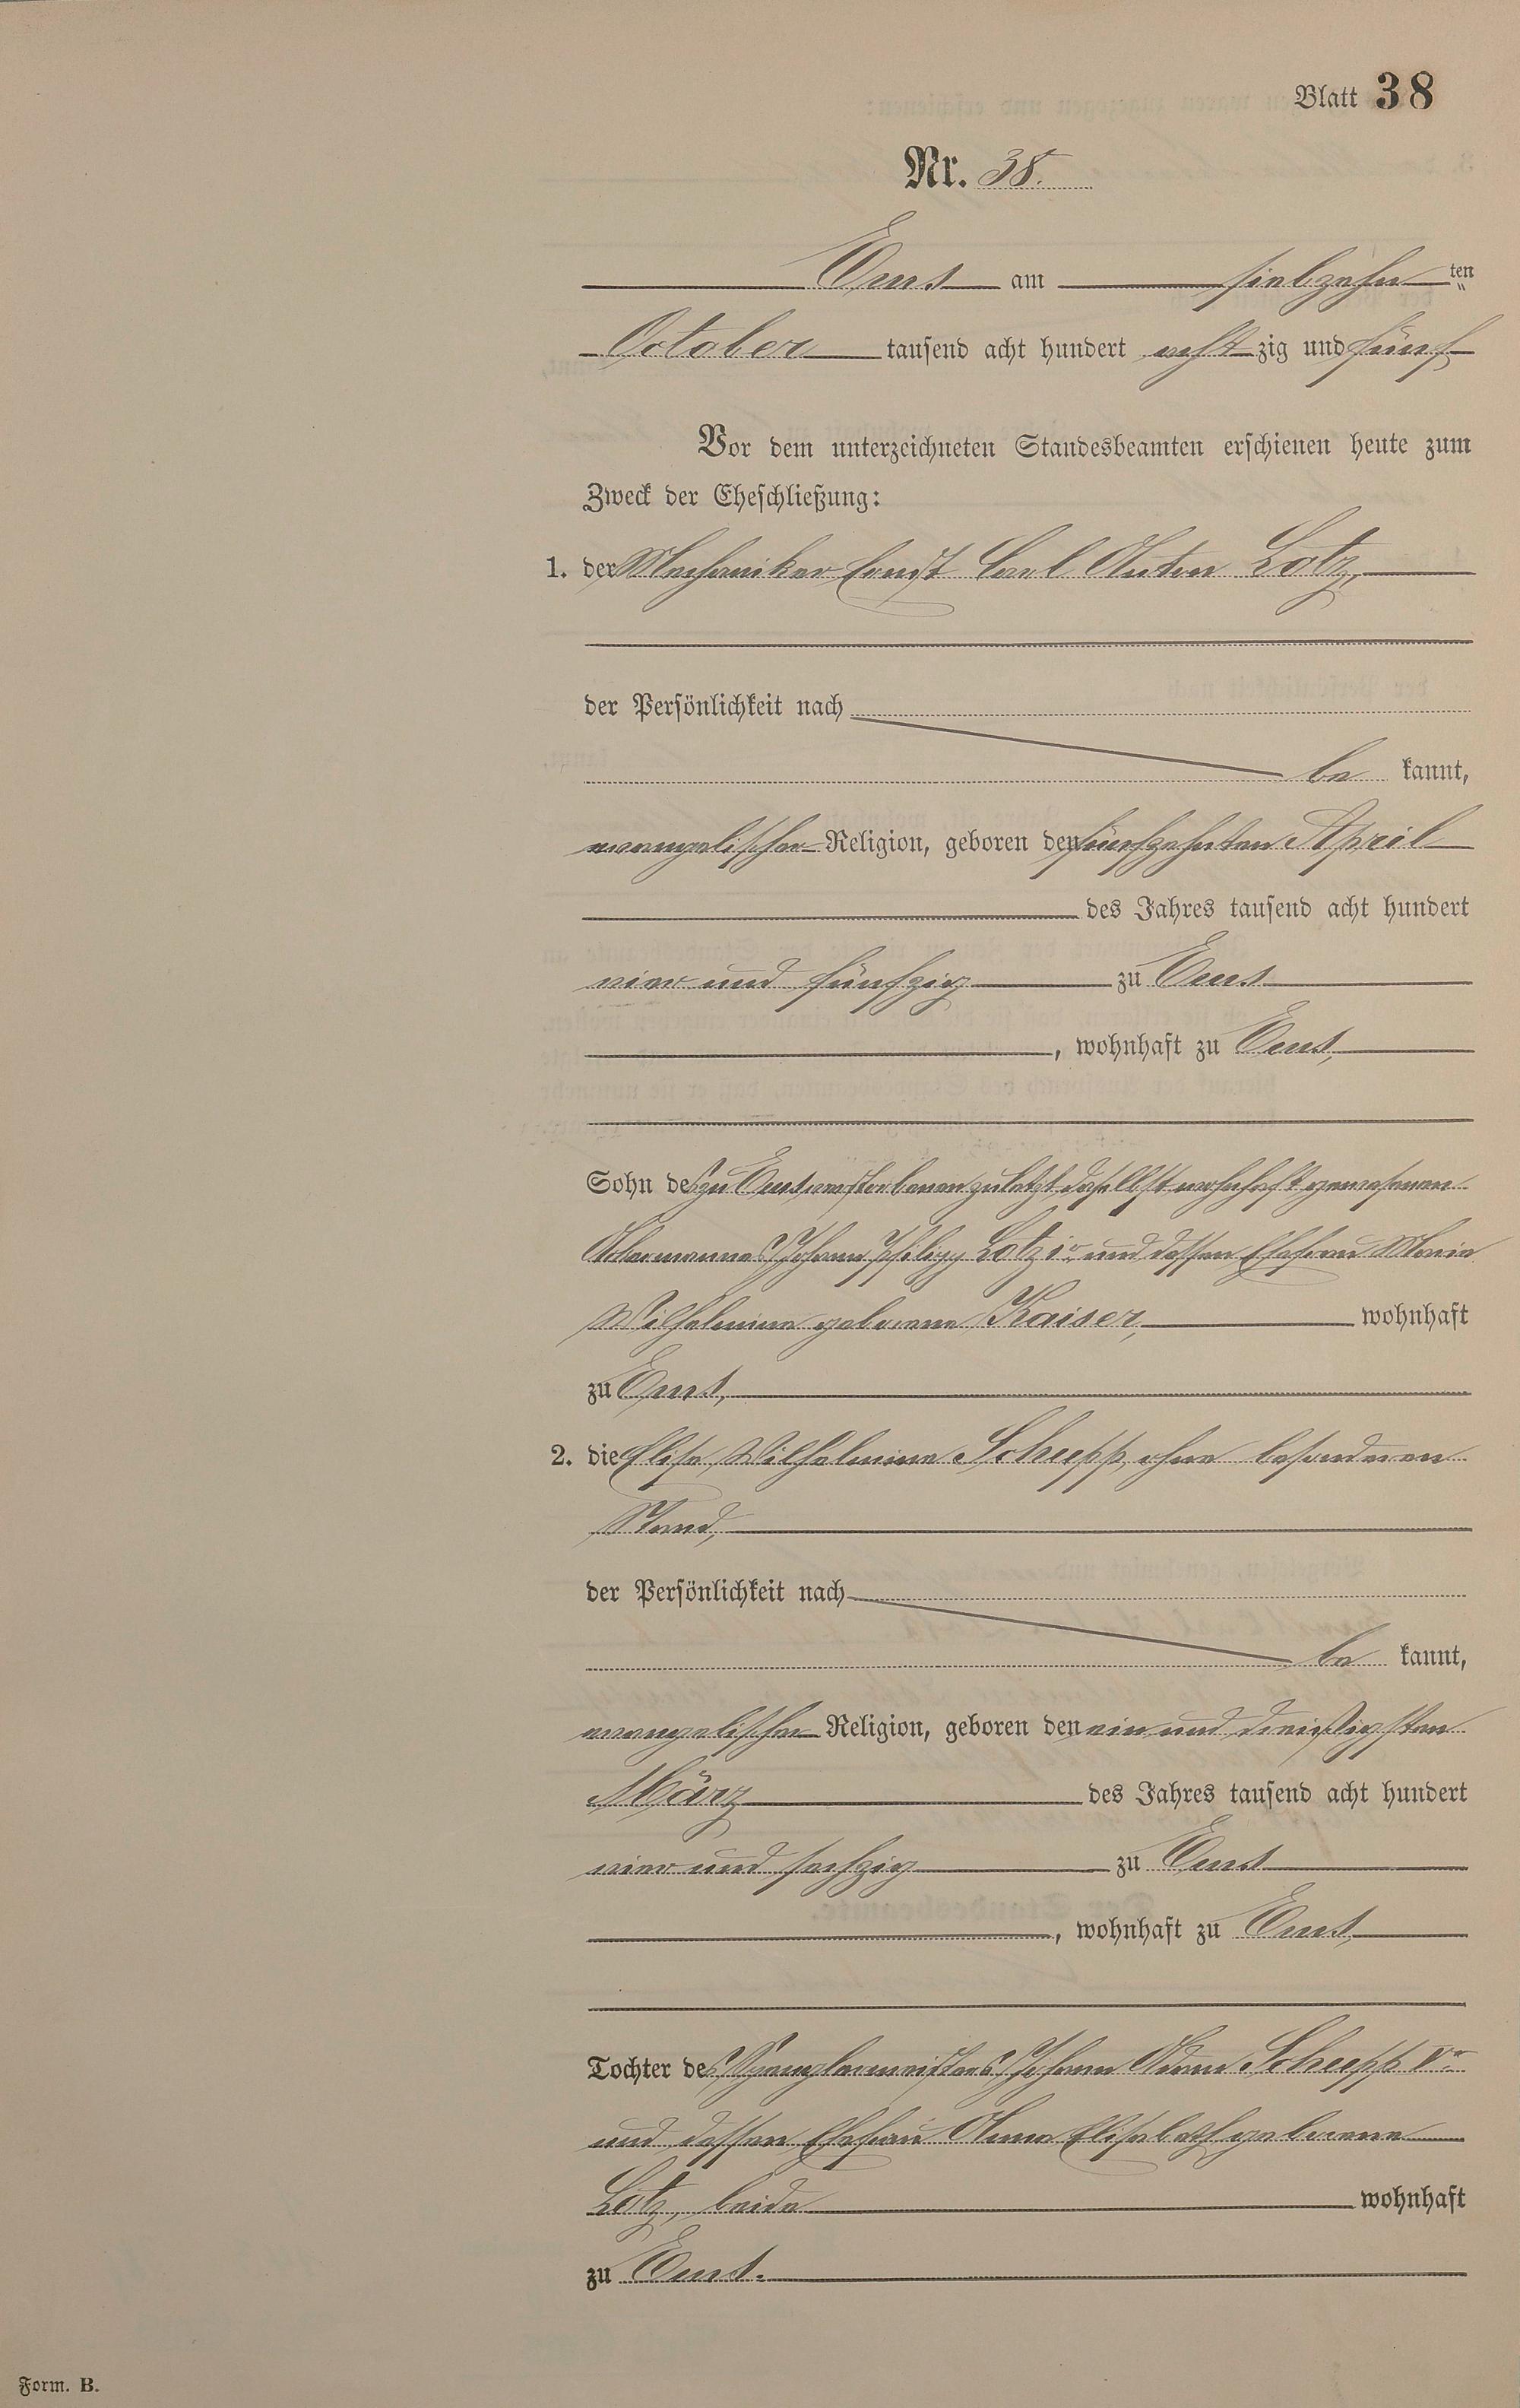 Blatt 38
Nr. 38.
Ems am siebzehn ten
October tausend acht hundert acht zig und fünf
Vor dem unterzeichneten Standesbeamten erschienen heute zum
Zweck der Eheschließung:
1. der Mechaniker Ernst Carl Anton Lotz,
der Persönlichkeit nach
be kannt,
evangelischer Religion, geboren den fünfzehnten April
des Jahres tausend acht hundert
vier und fünfzig zu Ems
, wohnhaft zu Ems,
Sohn des zu Ems verstorbenen zuletzt daselbst wohnhaft gewesenen
Ackermannes Johann Philipp Lotz und dessen Ehefrau Maria
Wilhelmine geborene Kaiser, wohnhaft
zu Ems,
2. die Elise Wilhelmine Schupp, ohne besonderen
Stand,
der Persönlichkeit nach
be kannt,
evangelischer Religion, geboren den ein und dreißigsten
März des Jahres tausend acht hundert
vier und sechzig zu Ems
, wohnhaft zu Ems,
Tochter des Spenglermeisters Johann Adam Schupp Vr
und dessen Ehefrau Anna Elisabeth geborene
Lotz, beide wohnhaft
zu Ems.
Form. B.